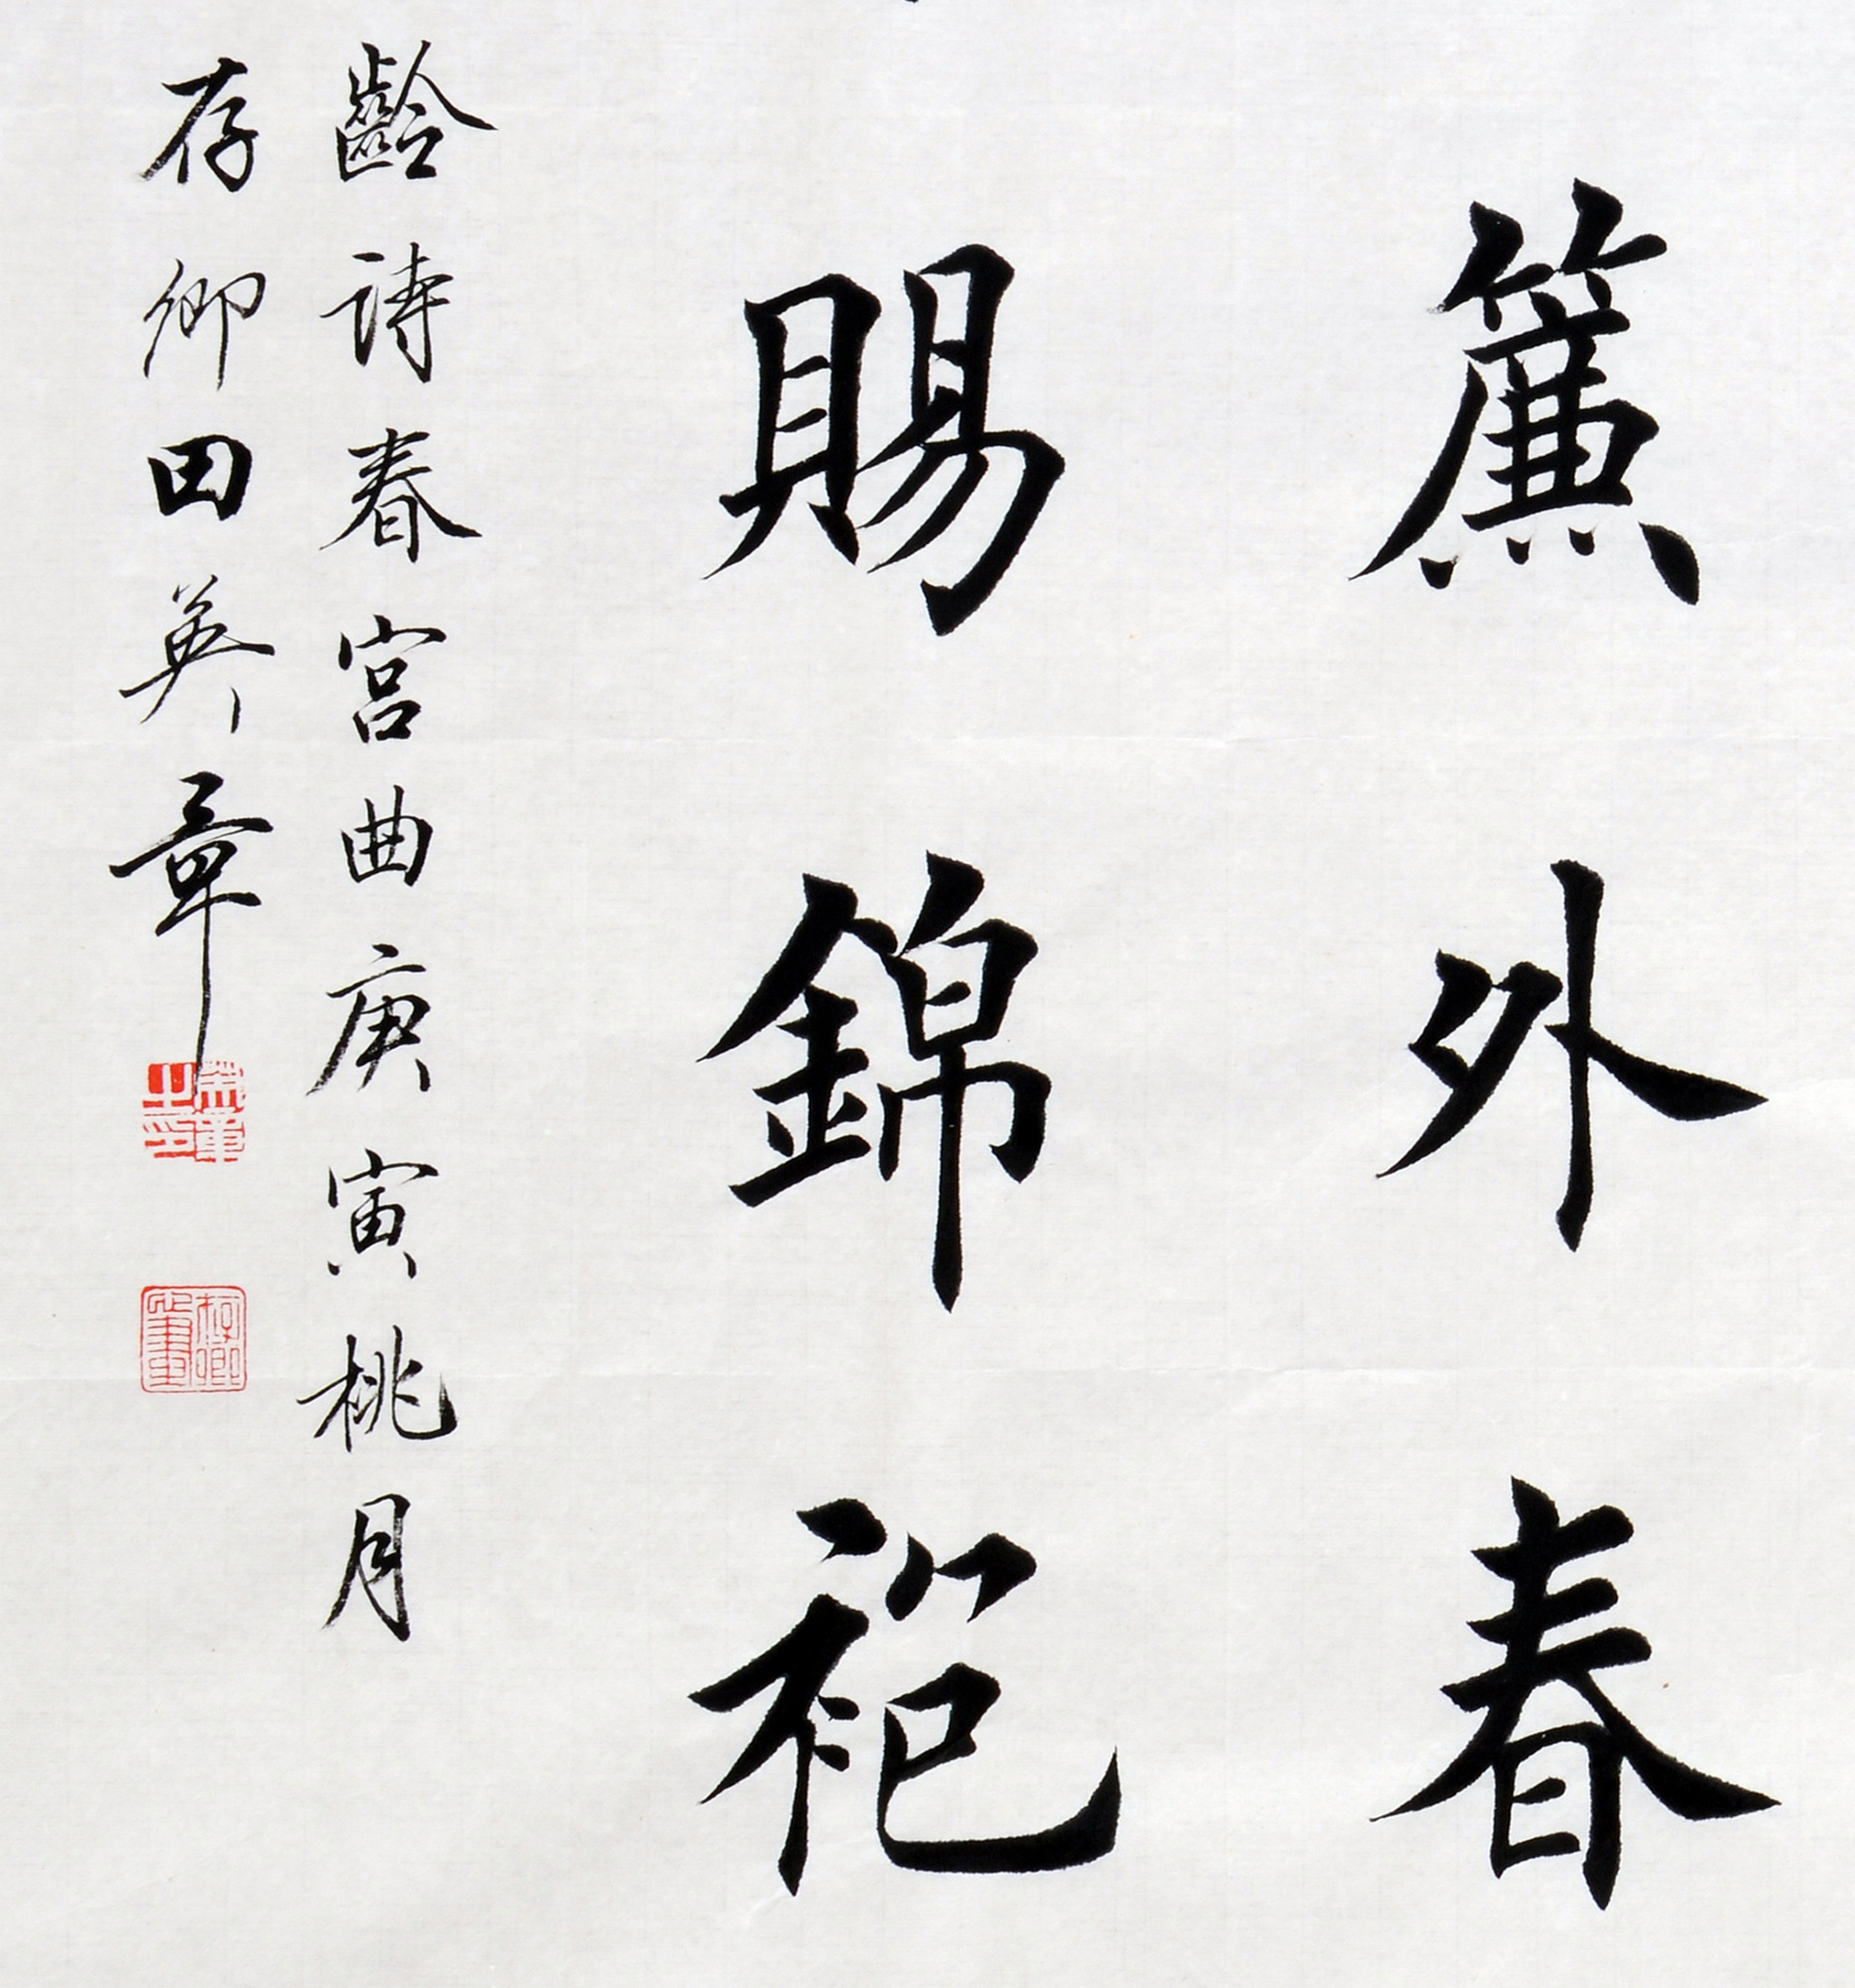 簾外春
賜錦袍
齡詩春宮曲庚寅桃月
存卿田英章